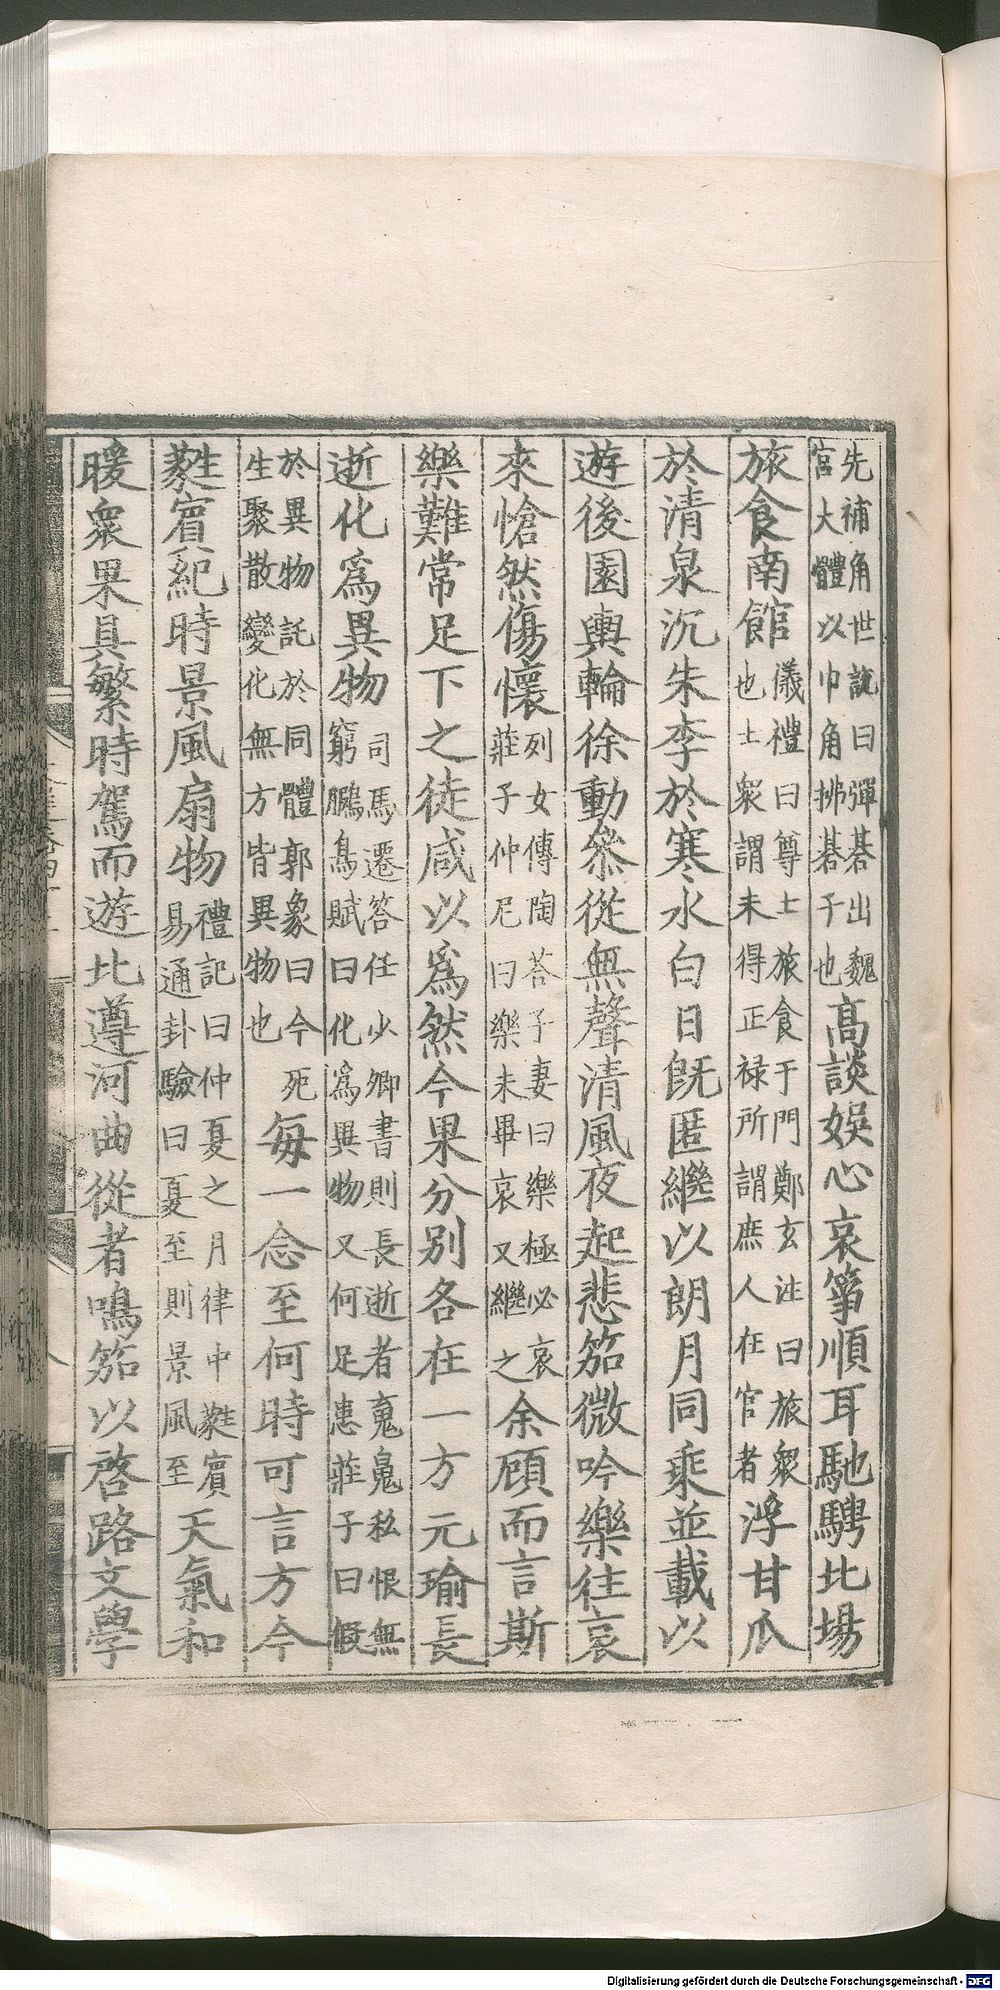 先補角世說曰彈碁出魏
宮大體以巾角拂碁子也高談娛心哀箏順耳馳騁北場
旅食南館儀禮曰尊士旅食于門鄭玄注曰旅衆
也士衆謂未得正禄所謂庶人在官者浮甘瓜
於清泉沉朱李於寒水白日旣匿繼以朗月同乘並載以
遊後園輿輪徐動叅從無聲清風夜起悲笳微吟樂往哀
來愴然傷懷列女傳陶荅子妻曰樂極必哀
莊子仲尼曰樂未畢哀又繼之余顧而言斯
樂難常足下之徒咸以爲然今果分別各在一方元瑜長
逝化爲異物司馬遷答任少卿書則長逝者䰟䰟私恨無
窮鵩鳥賦曰化爲異物又何足患莊子曰假
於異物託於同體郭象曰今死
生聚散變化無方皆異物也每一念至何時可言方今
蕤賓紀時景風扇物禮記曰仲夏之月律中蕤賓
易通卦驗曰夏至則景風至天氣和
暖衆果具繁時駕而遊北遵河曲從者鳴笳以啓路文學
Digitalisierung gefördert durch die Deutsche Forschungsgemeinschaft - DFG